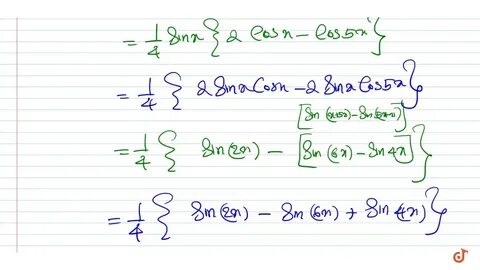 = 1/4 sinx { 2 cosx - cos5x }
= 1/4 { 2 sinx cosx - 2 sinx cos5x }
[sin(x+5x) - sin(5x-x)]
= 1/4 { sin(2x) - [sin(6x) - sin4x] }
= 1/4 { sin(2x) - sin(6x) + sin(4x) }